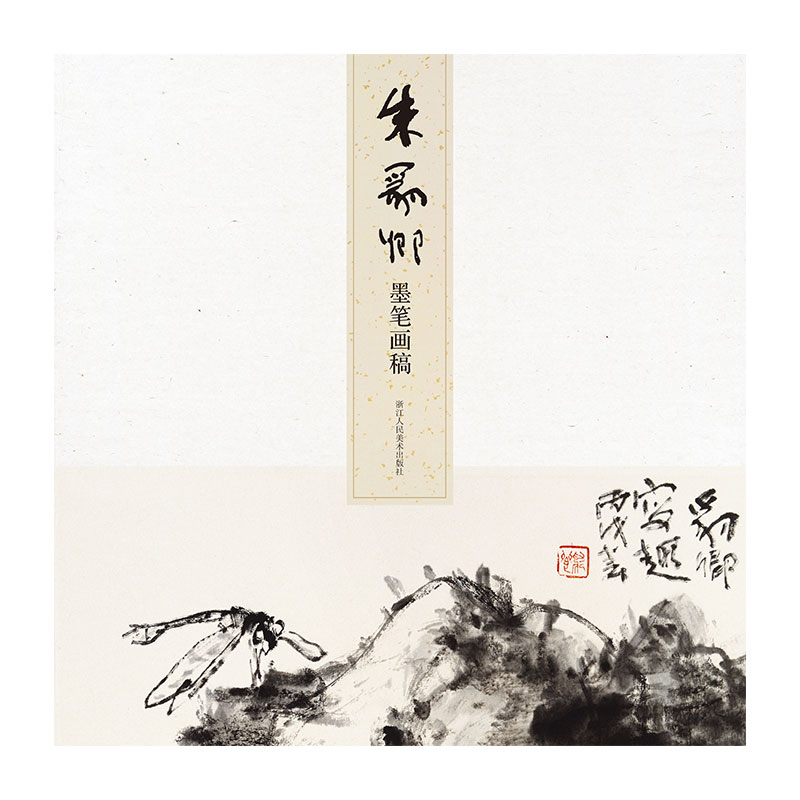 朱豹卿
墨笔画稿
浙江人民美术出版社
豹卿
寫趣
丙戌